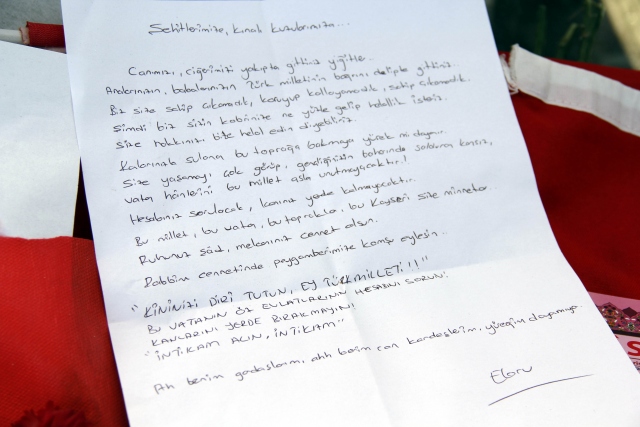 Şehitlerimize, kınalı kuzularımıza...
Canımızı, ciğerimizi yakıpta gittiniz yiğitler..
Analarınızın, babalarınızın Türk milletinin bağrını delipte gittiniz..
Biz size sahip çıkamadık, koruyup kollayamadık, sahip çıkamadık.
Şimdi biz sizin kabrinize ne yüzle gelip helallik isteriz
size hakkınızı bize helal edin diyebiliriz.
Kabrinizi sulana bu toprağa bakmaya yürek mi dayanır.
Size yaşamayı çok görüp, gençliğinizin baharında solduran kansız,
vatan hainlerini bu millet asla unutmayacaktır!
Hesabınız sorulacak, kanınız yerde kalmayacaktır..
Bu millet, bu vatan, bu topraklar, bu Kayseri size minnettar..
Ruhunuz şâd, mekanınız cennet olsun.
Rabbim cennetinde peygamberimize komşu eylesin..
"KİNİNİZİ DİRİ TUTUN, EY TÜRK MİLLETİ!!!"
BU VATANIN ÖZ EVLATLARININ HESABINI SORUN!
KANLARINI YERDE BIRAKMAYIN!
"İNTİKAM ALIN, İNTİKAM"
Ah benim gadaşlarım, ahh benim can kardeşlerim, yüreğim dayanmıyo..
Ebru